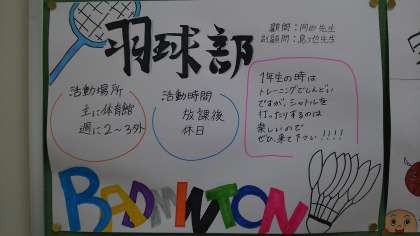 羽球部
顧問：岡田先生
副顧問：
活動場所
主に体育館
週に2～3外
活動時間
放課後
休日
1年生の時は
トレーニングでしんどい
ですが、シャトルを
打ったりするのは
楽しいので
ぜひ、来て下さい!!!!
BADMINTON